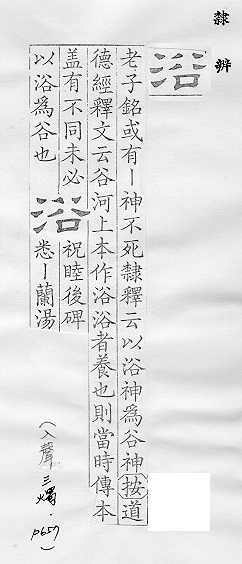 隸辨
浴
老子銘或有丨神不死隸釋云以浴神為谷神按道
德經釋文云谷河上本作浴浴者養也則當時傳本
蓋有不同未必
以浴為谷也
浴
祝睦後碑
悉丨蘭湯
(入聲三燭·p657)